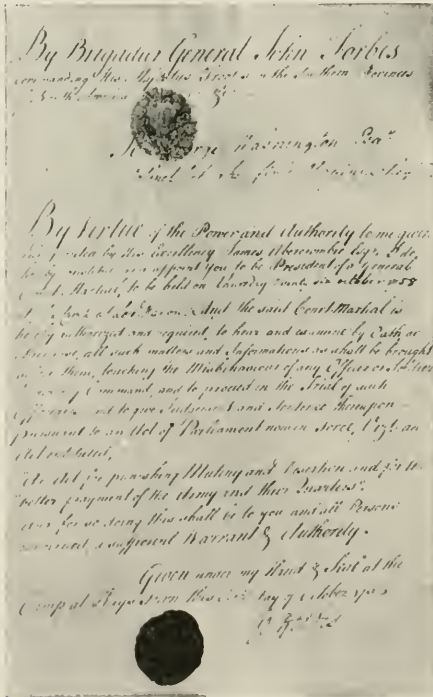 By Brigadier General John Forbes
commanding His Majestys Troops in the Southern Provinces
of North America &c
To George Washington Esqr
Colonel of the first Virginia
By Virtue of the Power and Authority to me given
by His Excellency James Abercrombie Esqr I do
appoint you to be President of a General
Court Martial, to be held on october 1758
And the said Court Martial is
hereby authorized and required, to hear and examine by Oath or
all such matters and Informations as shall be brought
before them, touching the Misbehaviour of any Officer or Soldier
Command, and to proceed in the Trial of such
Offences and to give Judgement and Sentence thereupon
pursuant to an Act of Parliament now in force,
Act entituled,
An Act for punishing Mutiny and Desertion and for the
better payment of the Army and their Quarters.
and for so doing this shall be to you and all Persons
concerned a sufficient Warrant & Authority.
Given under my Hand & Seal at the
Camp at this day of October
Forbes